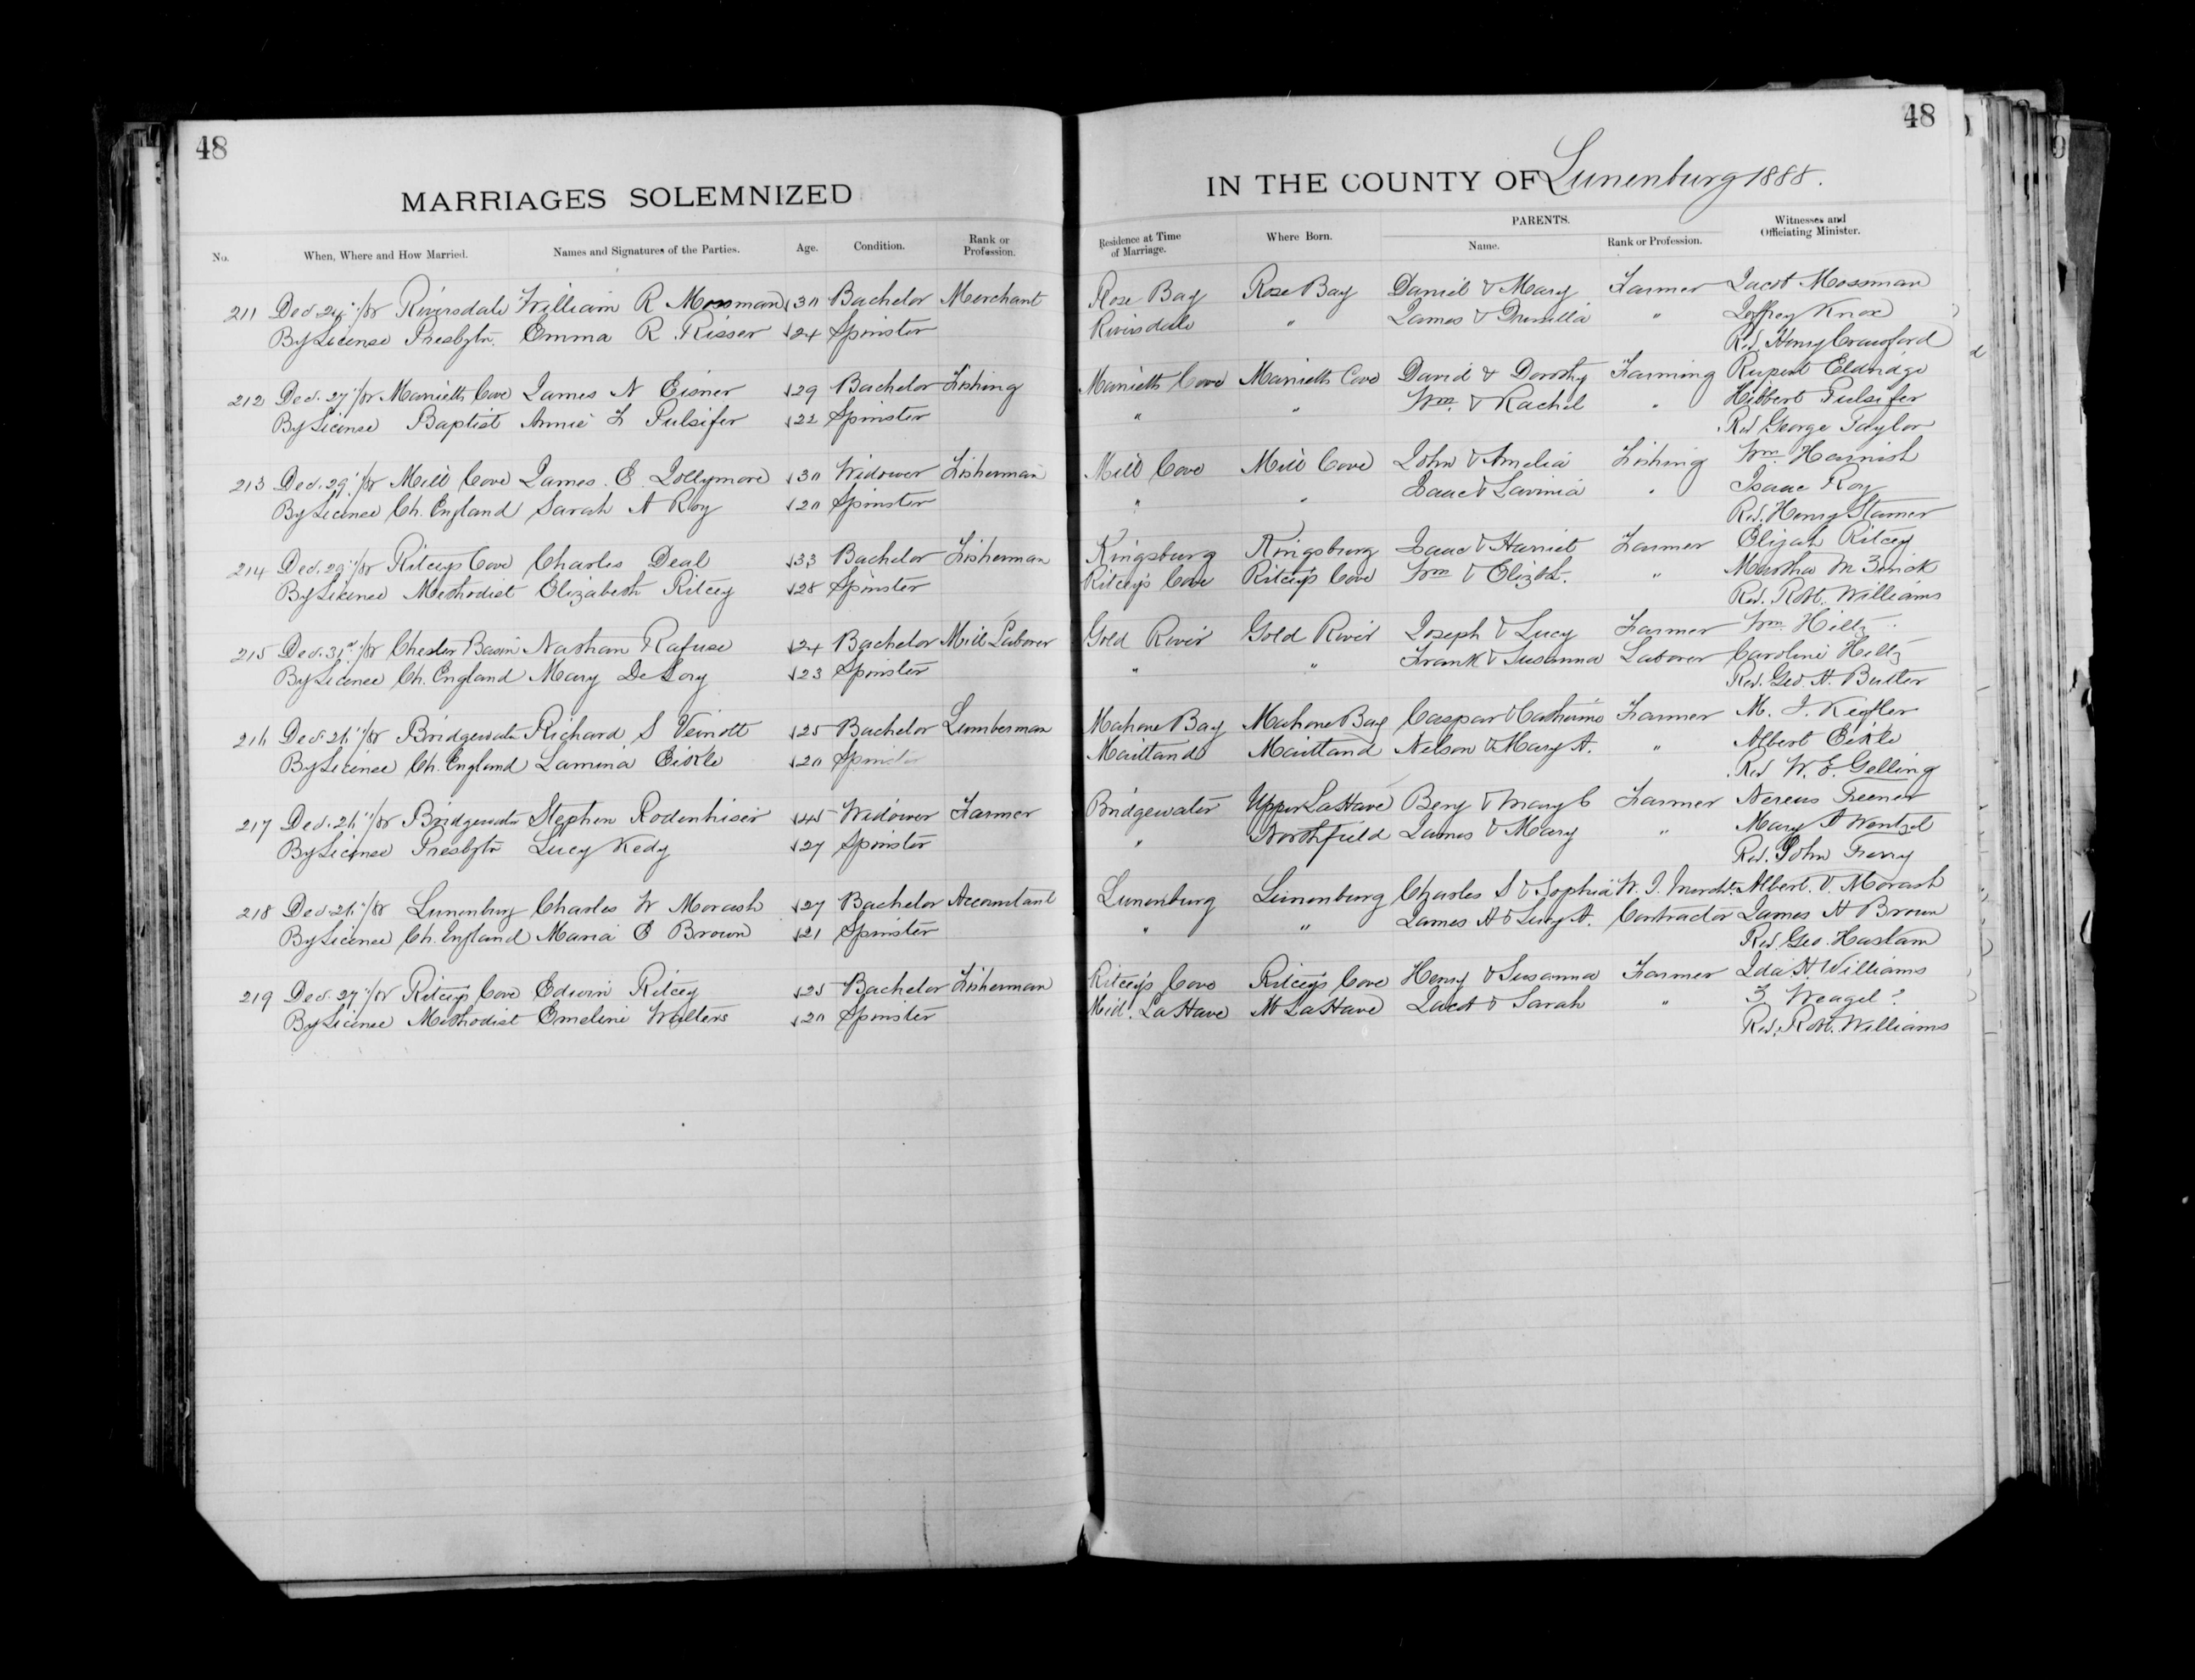 48
48
MARRIAGES SOLEMNIZED
IN THE COUNTY OF Lunenburg 1888.
No. When, Where and How Married. Names and Signatures of the Parties. Age. Condition. Rank or Profession. Residence at Time of Marriage. Where Born. PARENTS. Name. Rank or Profession. Witnesses and Officiating Minister.
211 Riversdale William R Mossman 30 Bachelor Merchant Rose Bay Rose Bay Daniel & Mary Farmer Jacob Mossman
By Licence Presbytn. Emma R Risser 24 Spinster Riversdale " James & " Jeffrey Knox
Rev. Henry Crawford
212 Dec. 27 /88 James N Eisner 29 Bachelor Fishing David & Dorothy Farming Rupert Eldridge
By Licence Baptist Annie L Pulsifer 22 Spinster " " Wm. & Rachel " Hibbert Pulsifer
Rev George Taylor
213 Dec. 29 /88 Mill Cove James E Jollymore 30 Widower Fisherman Mill Cove Mill Cove John & Amelia Fishing Wm. Harnish
By Licence Ch. England Sarah A Roy 20 Spinster " " Isaac & Lavinia " Isaac Roy
Rev. Henry Stamer
214 Dec. 29 /88 Ritceys Cove Charles Deal 33 Bachelor Fisherman Kingsburg Kingsburg Isaac & Harriet Farmer Elijah Ritcey
By Licence Methodist Elizabeth Ritcey 28 Spinster Ritcey's Cove Ritcey's Cove Wm & Elizth. " Martha M Zinck
Rev. Robt. Williams
215 Dec. 31st /88 Chester Basin Nathan Rafuse 24 Bachelor Mill Laborer Gold River Gold River Joseph & Lucy Farmer Wm. Hiltz
By Licence Ch. England Mary DeLory 23 Spinster " " Frank & Susanna Laborer Caroline Hiltz
Rev. Geo. H. Butler
216 Dec. 26 /88 Bridgewater Richard S Veinott 25 Bachelor Lumberman Mahone Bay Mahone Bay Caspar & Catherine Farmer M. J.
By Licence Ch. England Lamina Eikle 20 Spinster Maitland Maitland Nelson & Mary A. " Albert Eikle
Rev W. E. Gelling
217 Dec. 26 /88 Bridgewater Stephen Rodenhiser 45 Widower Farmer Bridgewater Upper LaHave Benj & Mary C Farmer Nereus Freener
By Licence Presbytn Lucy Kedy 27 Spinster " Northfield James & Mary " Mary A Wentzel
Rev. John
218 Dec. 26 /88 Lunenburg Charles W Morash 27 Bachelor Accountant Lunenburg Lunenburg Charles S & Sophia W. I. Mercht. Albert V. Morash
By Licence Ch. England Maria E Brown 21 Spinster " " James A & Lucy A. Contractor James H Brown
Rev. Geo. Haslam
219 Dec. 27 /88 Ritceys Cove Edwin Ritcey 25 Bachelor Fisherman Ritcey's Cove Ritcey's Cove Henry & Susanna Farmer Ida H Williams
By Licence Methodist Emeline Walters 20 Spinster Mid. LaHave M LaHave Jacob & Sarah " Z Weagel ?
Rev. Robt. Williams